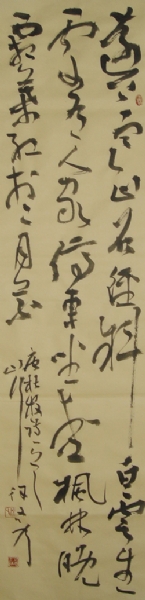 遠上寒山石徑斜白雲生
處有人家停車坐愛楓林晚
霜葉紅於二月花
唐杜牧詩
山行